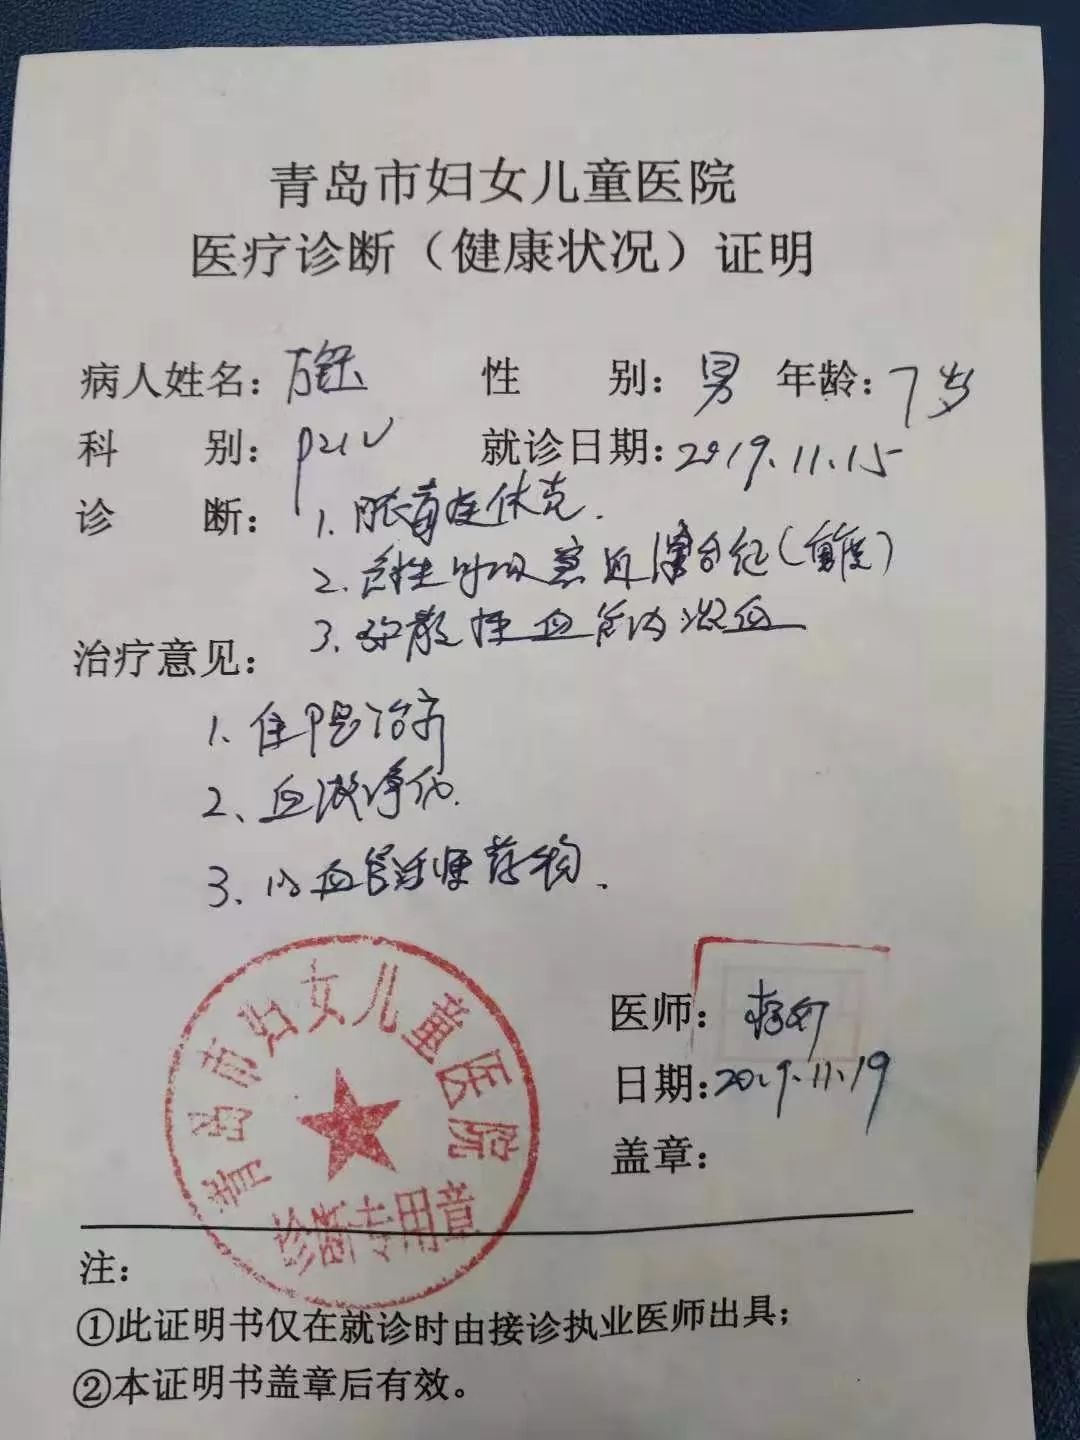 青岛市妇女儿童医院
医疗诊断（健康状况）证明
病人姓名：方 性 别：男 年龄：7岁
科 别： 就诊日期：2019.11.15
诊 断：1.脓毒症休克.
2.急性呼吸窘迫综合征(重度)
3.弥散性血管内凝血
治疗意见：
1、住院治疗
2、血液净化.
3、心血管活性药物.
医师：
日期：2019.11.19
盖章：
青岛市妇女儿童医院
诊断专用章
注：
①此证明书仅在就诊时由接诊执业医师出具；
②本证明书盖章后有效。